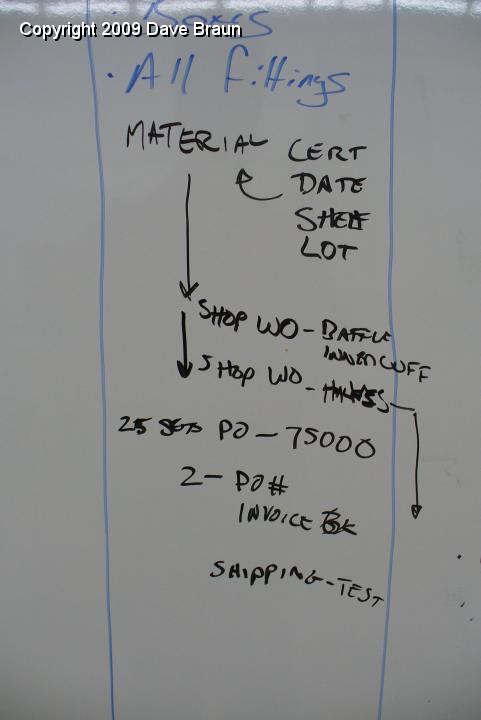 Copyright 2009 Dave Braun
· Boxes
· All fittings
MATERIAL CERT
DATE
SHELF
LOT
SHOP WO - BAFFLE
INNER CUFF
SHOP WO -
25 SETS PO - 75000
2 - PO#
INVOICE
SHIPPING - TEST